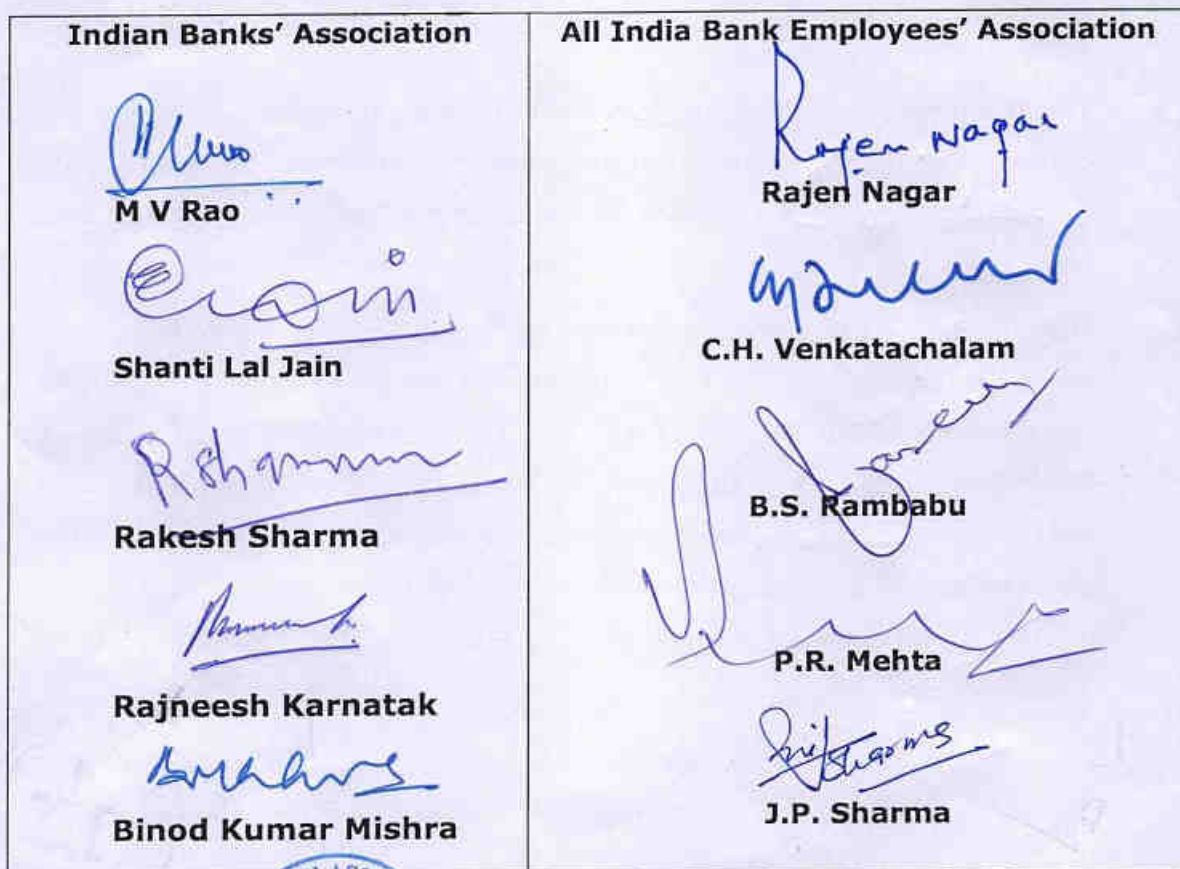 Indian Banks' Association
M V Rao
Shanti Lal Jain
Rakesh Sharma
Rajneesh Karnatak
Binod Kumar Mishra
All India Bank Employees' Association
Rajen Nagar
Rajen Nagar
C.H. Venkatachalam
B.S. Rambabu
P.R. Mehta
J.P. Sharma